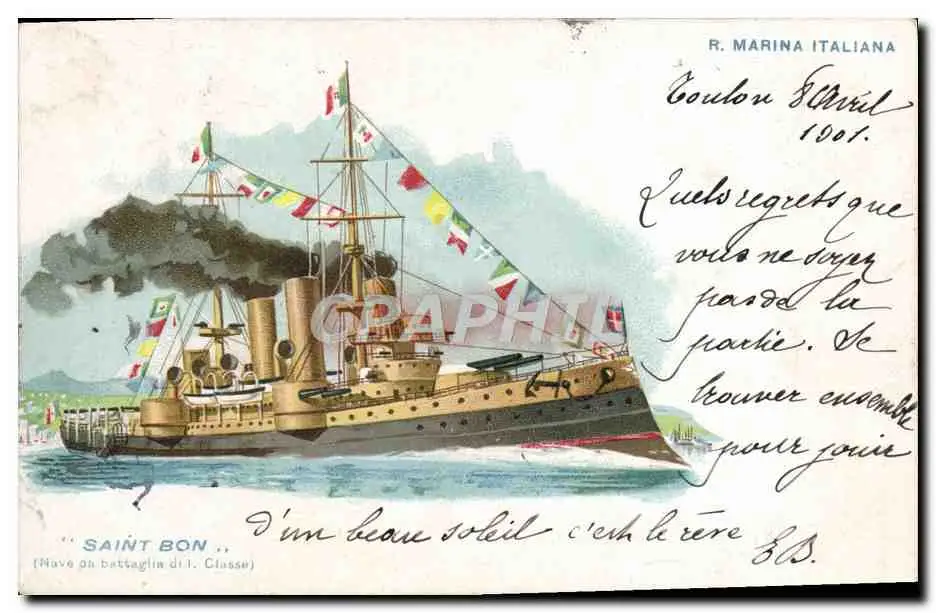 R. MARINA ITALIANA
Toulon 8 Avril
1901.
Quels regrets que
vous ne soyez
pas de la
partie. Se
trouver ensemble
pour jouir
d'un beau soleil c'est le rêve
EB.
CARTOGRAPHILIE
"SAINT BON"
(Nave da battaglia di I. Classe)